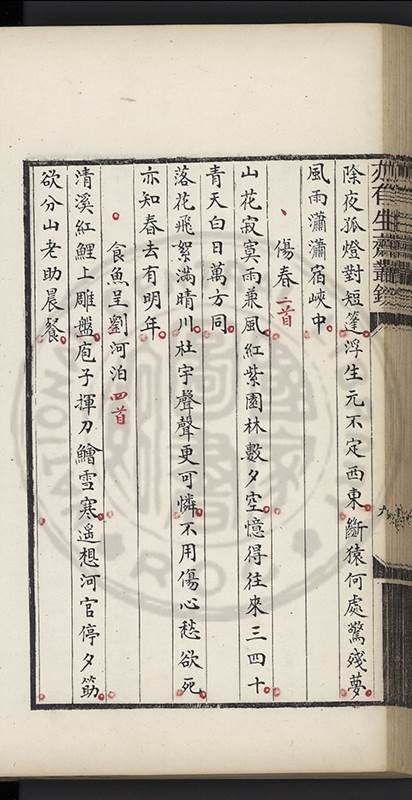 除夜孤燈對短篷浮生元不定西東斷猿何處驚殘夢
風雨瀟瀟宿峽中
傷春二首
山花寂寞雨兼風紅紫園林數夕空憶得往來三四十
青天白日萬方同
落花飛絮滿晴川杜宇聲聲更可憐不用傷心愁欲死
亦知春去有明年
食魚呈劉河泊四首
清溪紅鯉上雕盤庖子揮刀鱠雪寒遥想河官停夕筯
欲分山老助晨餐